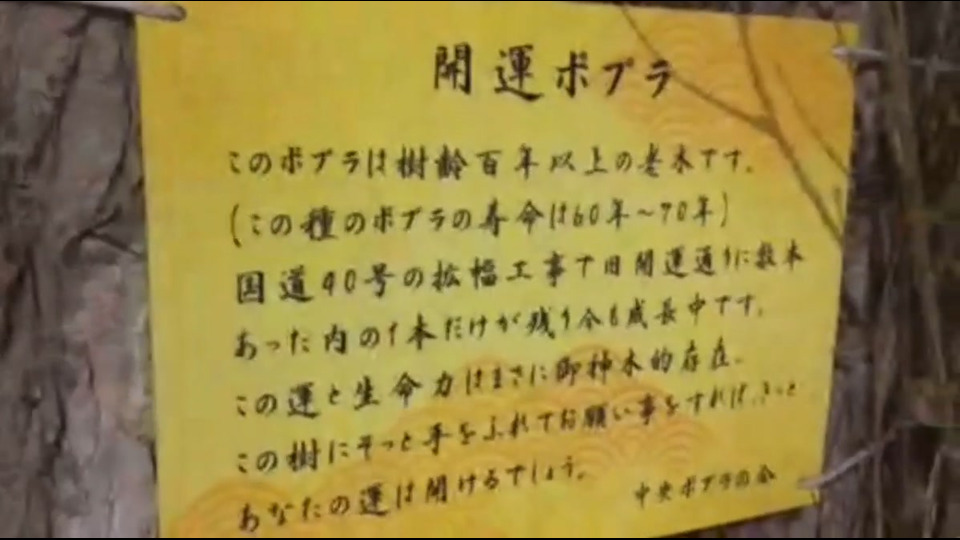 開運ポプラ
このポプラは樹齢百年以上の老木です。
(この種のポプラの寿命は60年～70年)
国道40号の拡幅工事で旧開運通りに数本
あった内の1本だけが残り今も成長中です。
この運と生命力はまさに御神木的存在。
この樹にそっと手をふれてお願い事をすれば、きっと
あなたの運は開けるでしょう。
中央ポプラの会